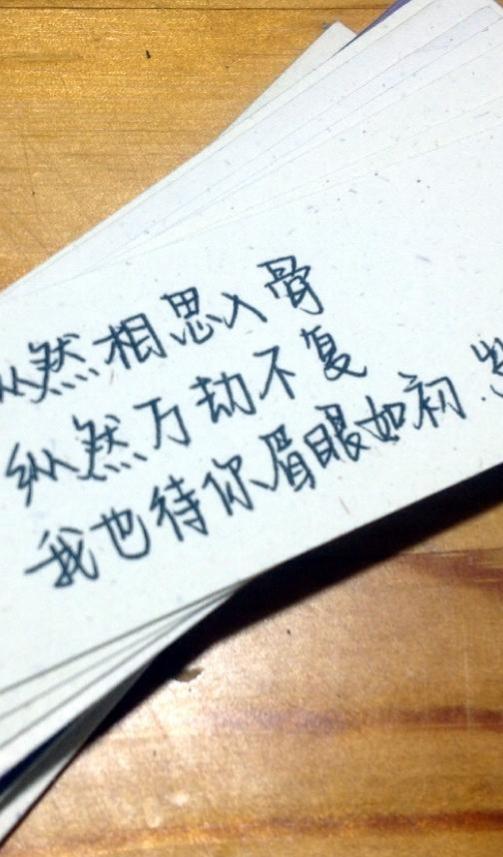 纵然相思入骨
纵然万劫不复
我也待你眉眼如初.